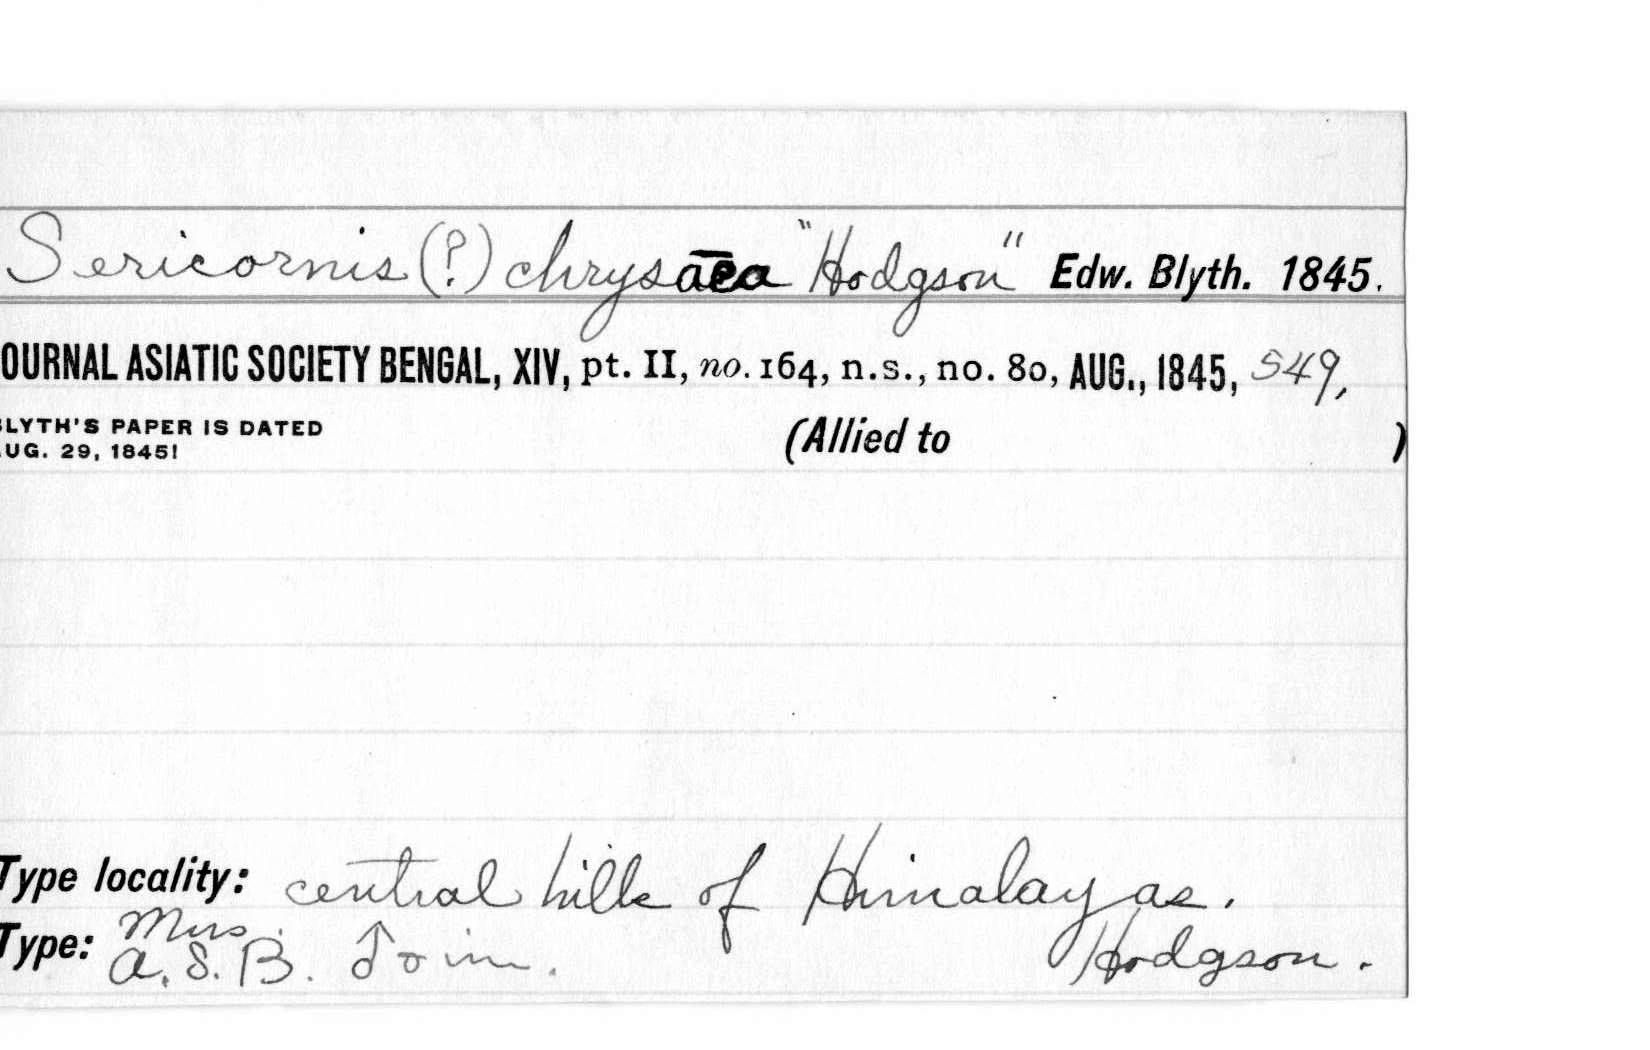 Sericornis (?) chrysāea "Hodgson" Edw. Blyth. 1845.
OURNAL ASIATIC SOCIETY BENGAL, XIV, pt. II, no. 164, n.s., no. 80, AUG., 1845, 549,
LYTH'S PAPER IS DATED (Allied to )
UG. 29, 1845!
Type locality: central hills of Himalayas.
Mus.
Type: A.S.B. ♂ im. Hodgson.